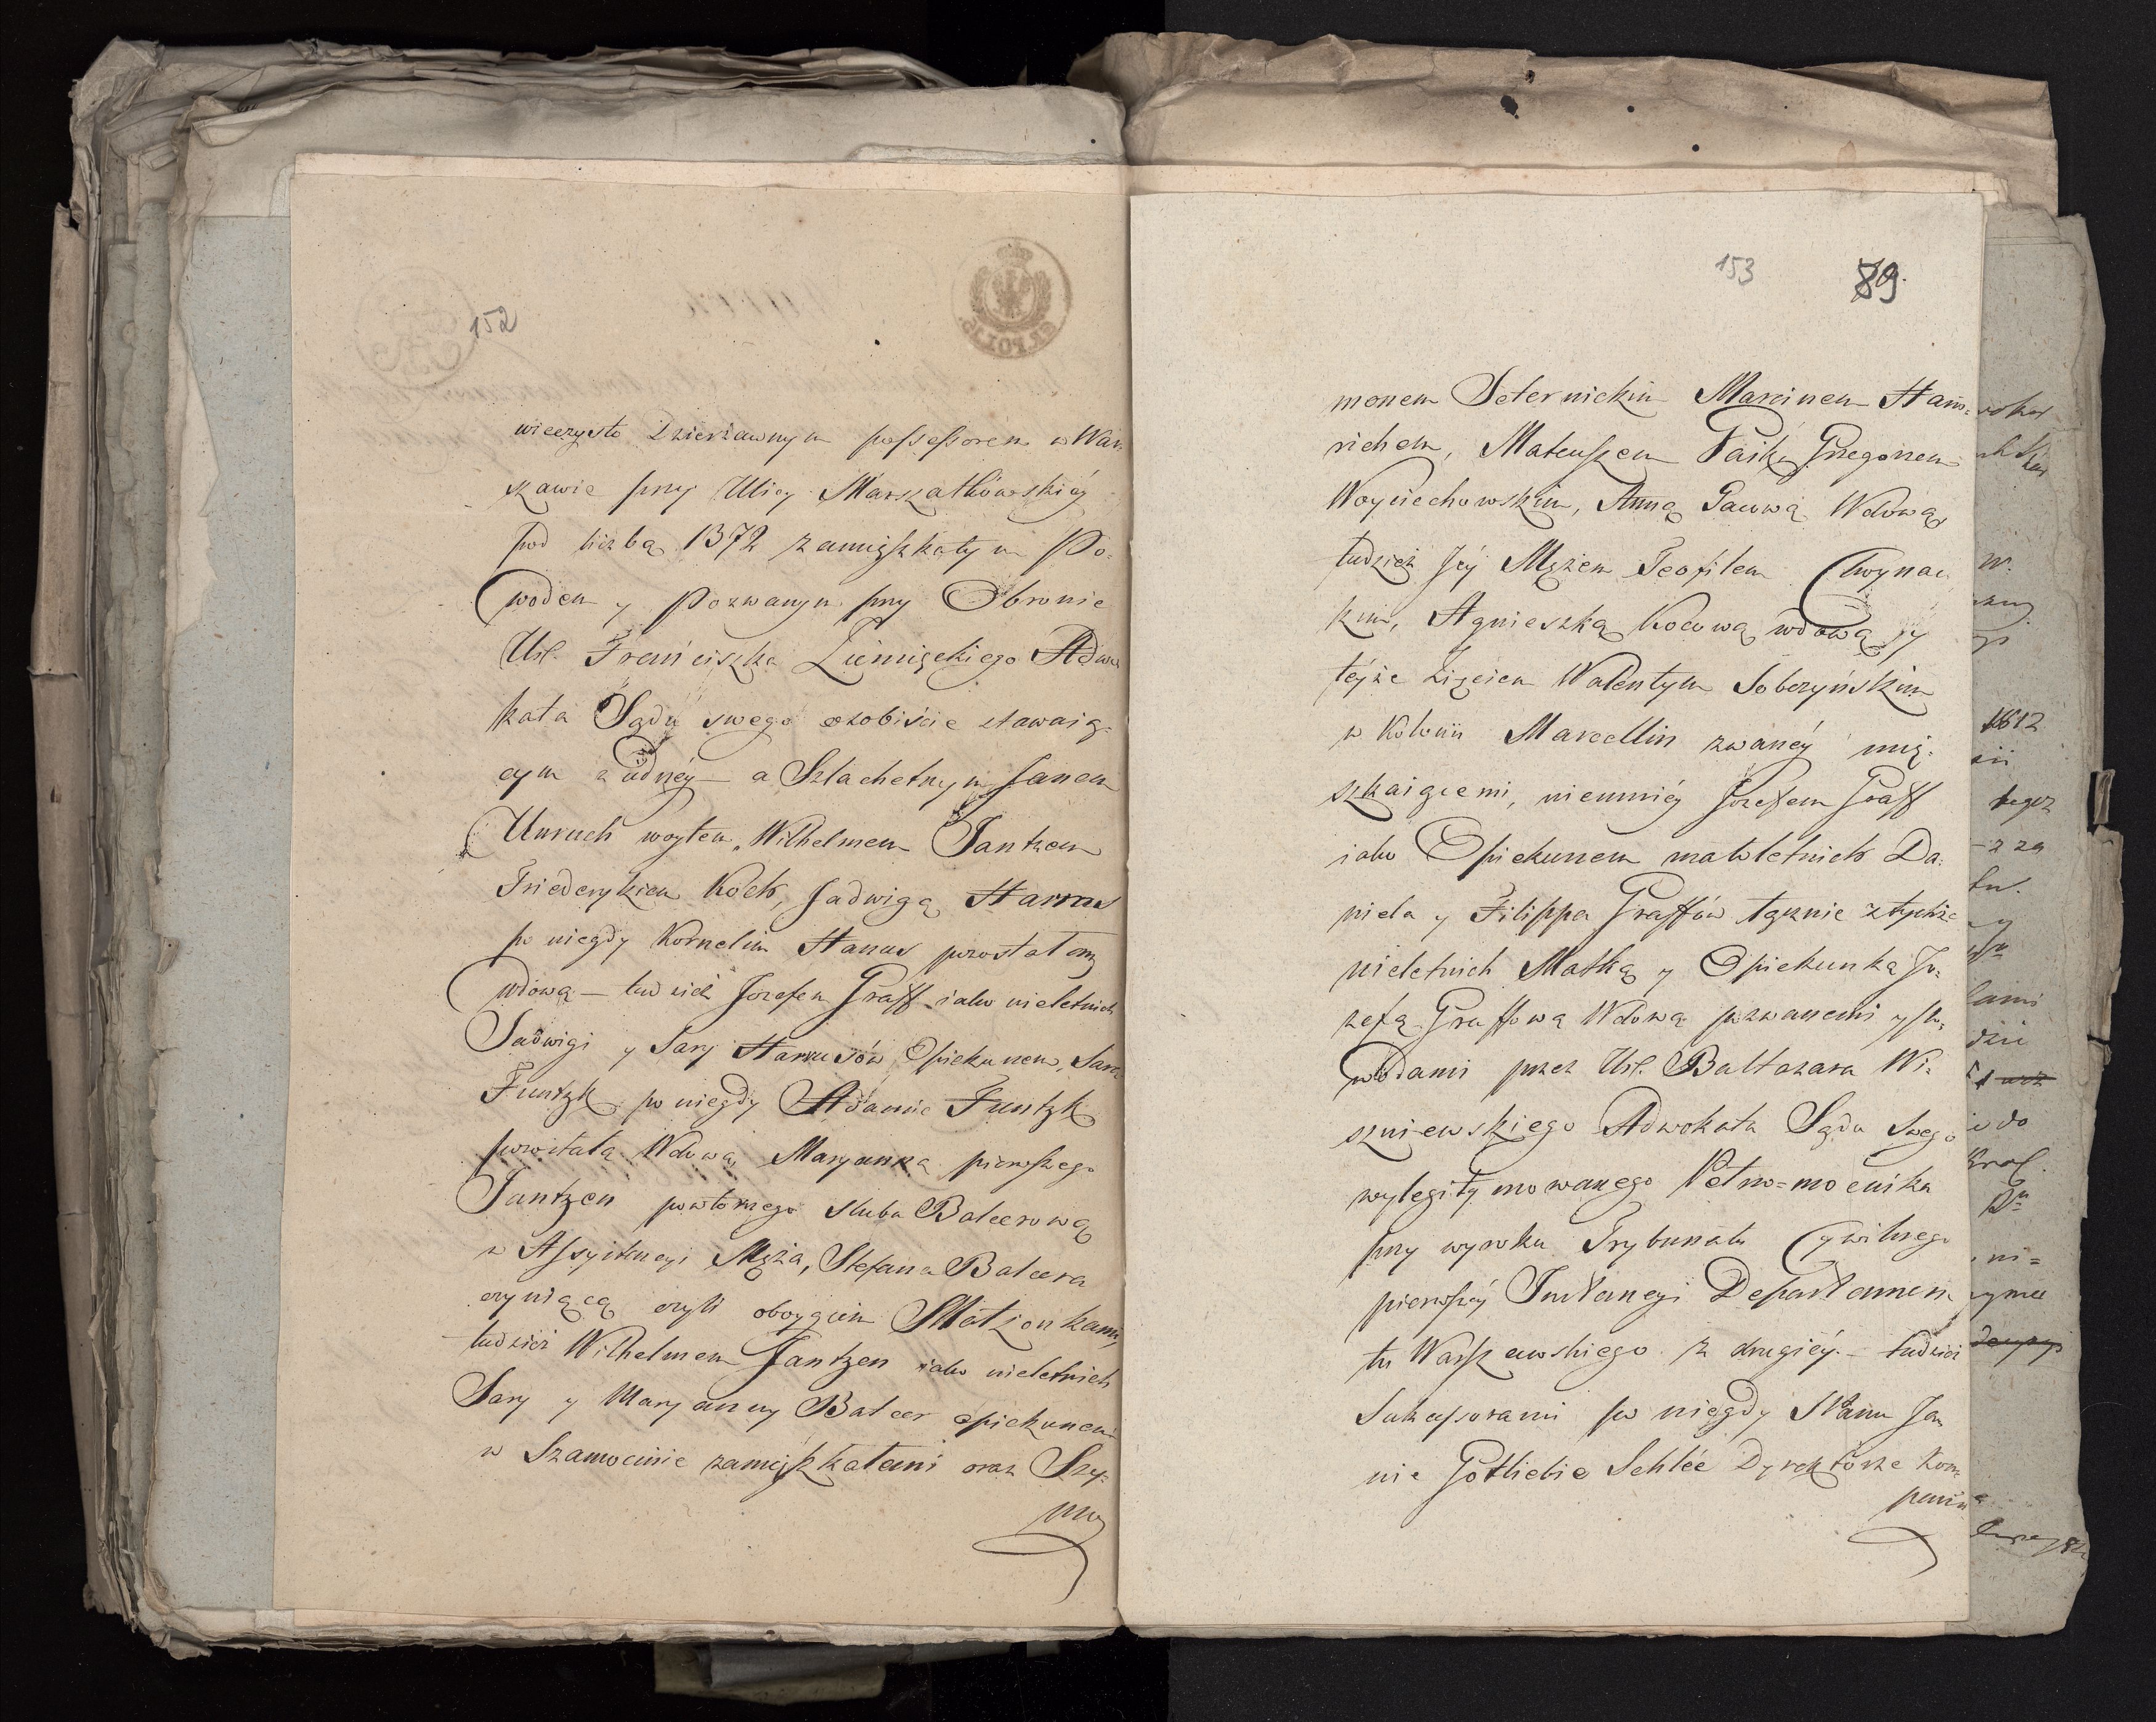 152
wieczysto Dzierżawnym possessorem w War
szawie przy Ulicy Marszałkowskiey
pod liczbą 1372 zamięszkałym Po-
wodem y Pozwanym przy Obronie
Url. Franciszka Ziemięckiego Adwo
kata Sądu swego osobiście stawaią-
cym z iednéy — a Szlachetnym Janem
Unruch woytem, Wilhelmem Jantzem
Friederykiem Koch, Jadwigą Harnus
po niegdy Kornelim Hanus pozostałą
wdową — tudzież Jozefem Graff iako nieletnich
Jadwigi y Sary Hanusów Opiekunem, Sarą
Funtzk po niegdy Adamie Funtzk
pozostałą Wdową, Maryanną pierwszego
Jantzen powtornego slubu Balcerową
w Assystencyi Męża, Stefana Balcera
czyniącą czyli oboygiem Małżonkami,
tudzież Wilhelmem Jantzen iako nieletnich
Sary y Maryanny Balcer opiekunem
w Szamocinie zamięszkałemi oraz Szy-
mo
153 89.
monem Seternickim Marcinem Ham-
richem, Mateuszem Paiką Grzegorzem
Woyciechowskim, Anną Gacową Wdową,
tudzież Jéy Mężem Teofilem Chwynac
kim, Agnieszką Kocową wdową y
téyże Zięciem Walentym Sobczyńskim
w Kolonii Marcellin zwanéy mię-
szkaiącemi, niemniéy Jozefem Graff
iako Opiekunem małoletnich Da-
niela y Filippa Graffów łącznie z tychże
nieletnich Matką y Opiekunką Jo-
zefą Graffową Wdową pozwanemi y po-
wodami przez Url. Baltazara Wi-
szniewskiego Adwokata Sądu swego
wylegitymowanego Pełno-mocnika
przy wyroku Trybunału Cywilnego
pierwszéy Instancyi Departamen
tu Warszawskiego z drugiéy — tudzież
Sukcessorami po niegdy Panu Ja
nie Gottliebie Schlée Dyrektorze Kom
panii
1812